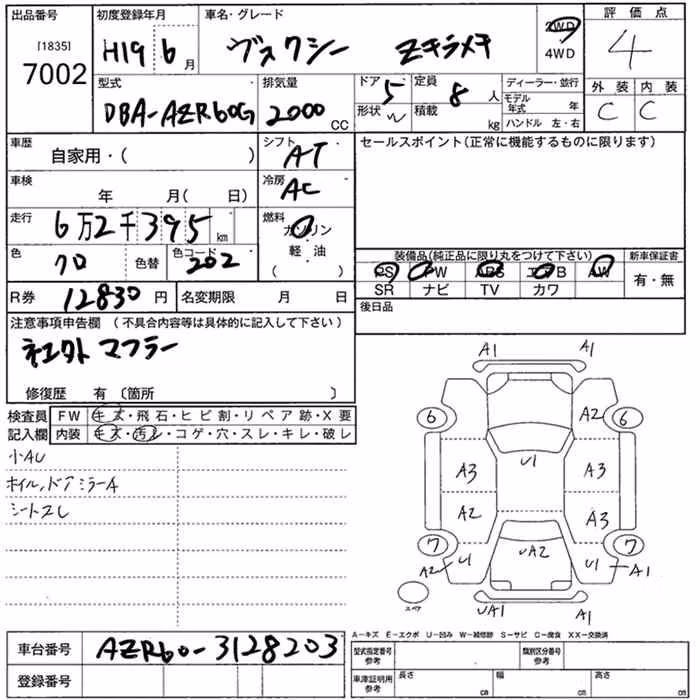 出品番号 初度登録年月 車名・グレード 評価点
[1835] 7002 H19 6月 ヴォクシー Zキラメキ 2WD 4WD 4
型式 排気量 ドア 定員 ディーラー・並行 外装 内装
DBA-AZR60G 2000 CC 5 8 人 モデル年式 年 C C
形状 積載 kg ハンドル 左・右
車歴 自家用・( ) シフト AT セールスポイント(正常に機能するものに限ります)
車検 年 月( 日) 冷房 AC
走行 6万2千395 km 燃料 ガソリン 軽・油 ( )
色 クロ 色替 色コード 202
装備品(純正品に限り丸をつけて下さい) 新車保証書
PS PW ABS エアB AW 有・無
SR ナビ TV カワ
R券 12830円 名変期限 月 日 後日品
注意事項申告欄 (不具合内容等は具体的に記入して下さい)
マフラー
修復歴 有 〔箇所 〕
検査員 FW キズ・飛石・ヒビ割・リペア跡・X要
記入欄 内装 キズ・汚レ・コゲ・穴・スレ・キレ・破レ
小4U
ホイル,ドアミラーA
シートヨレ
A1 A1
6 A2 6
U1
A3 A3
A2 A3
7 U1 UA2 U1 7
A2 A1
スペア UA1 A1
A-キズ E-エクボ U-凹み W-補修跡 S-サビ C-腐食 XX-交換済
車台番号 AZR60-3128203 型式指定番号 参考 類別区分番号 参考
登録番号 車庫証明用 参考 長さ cm 幅 cm 高さ cm